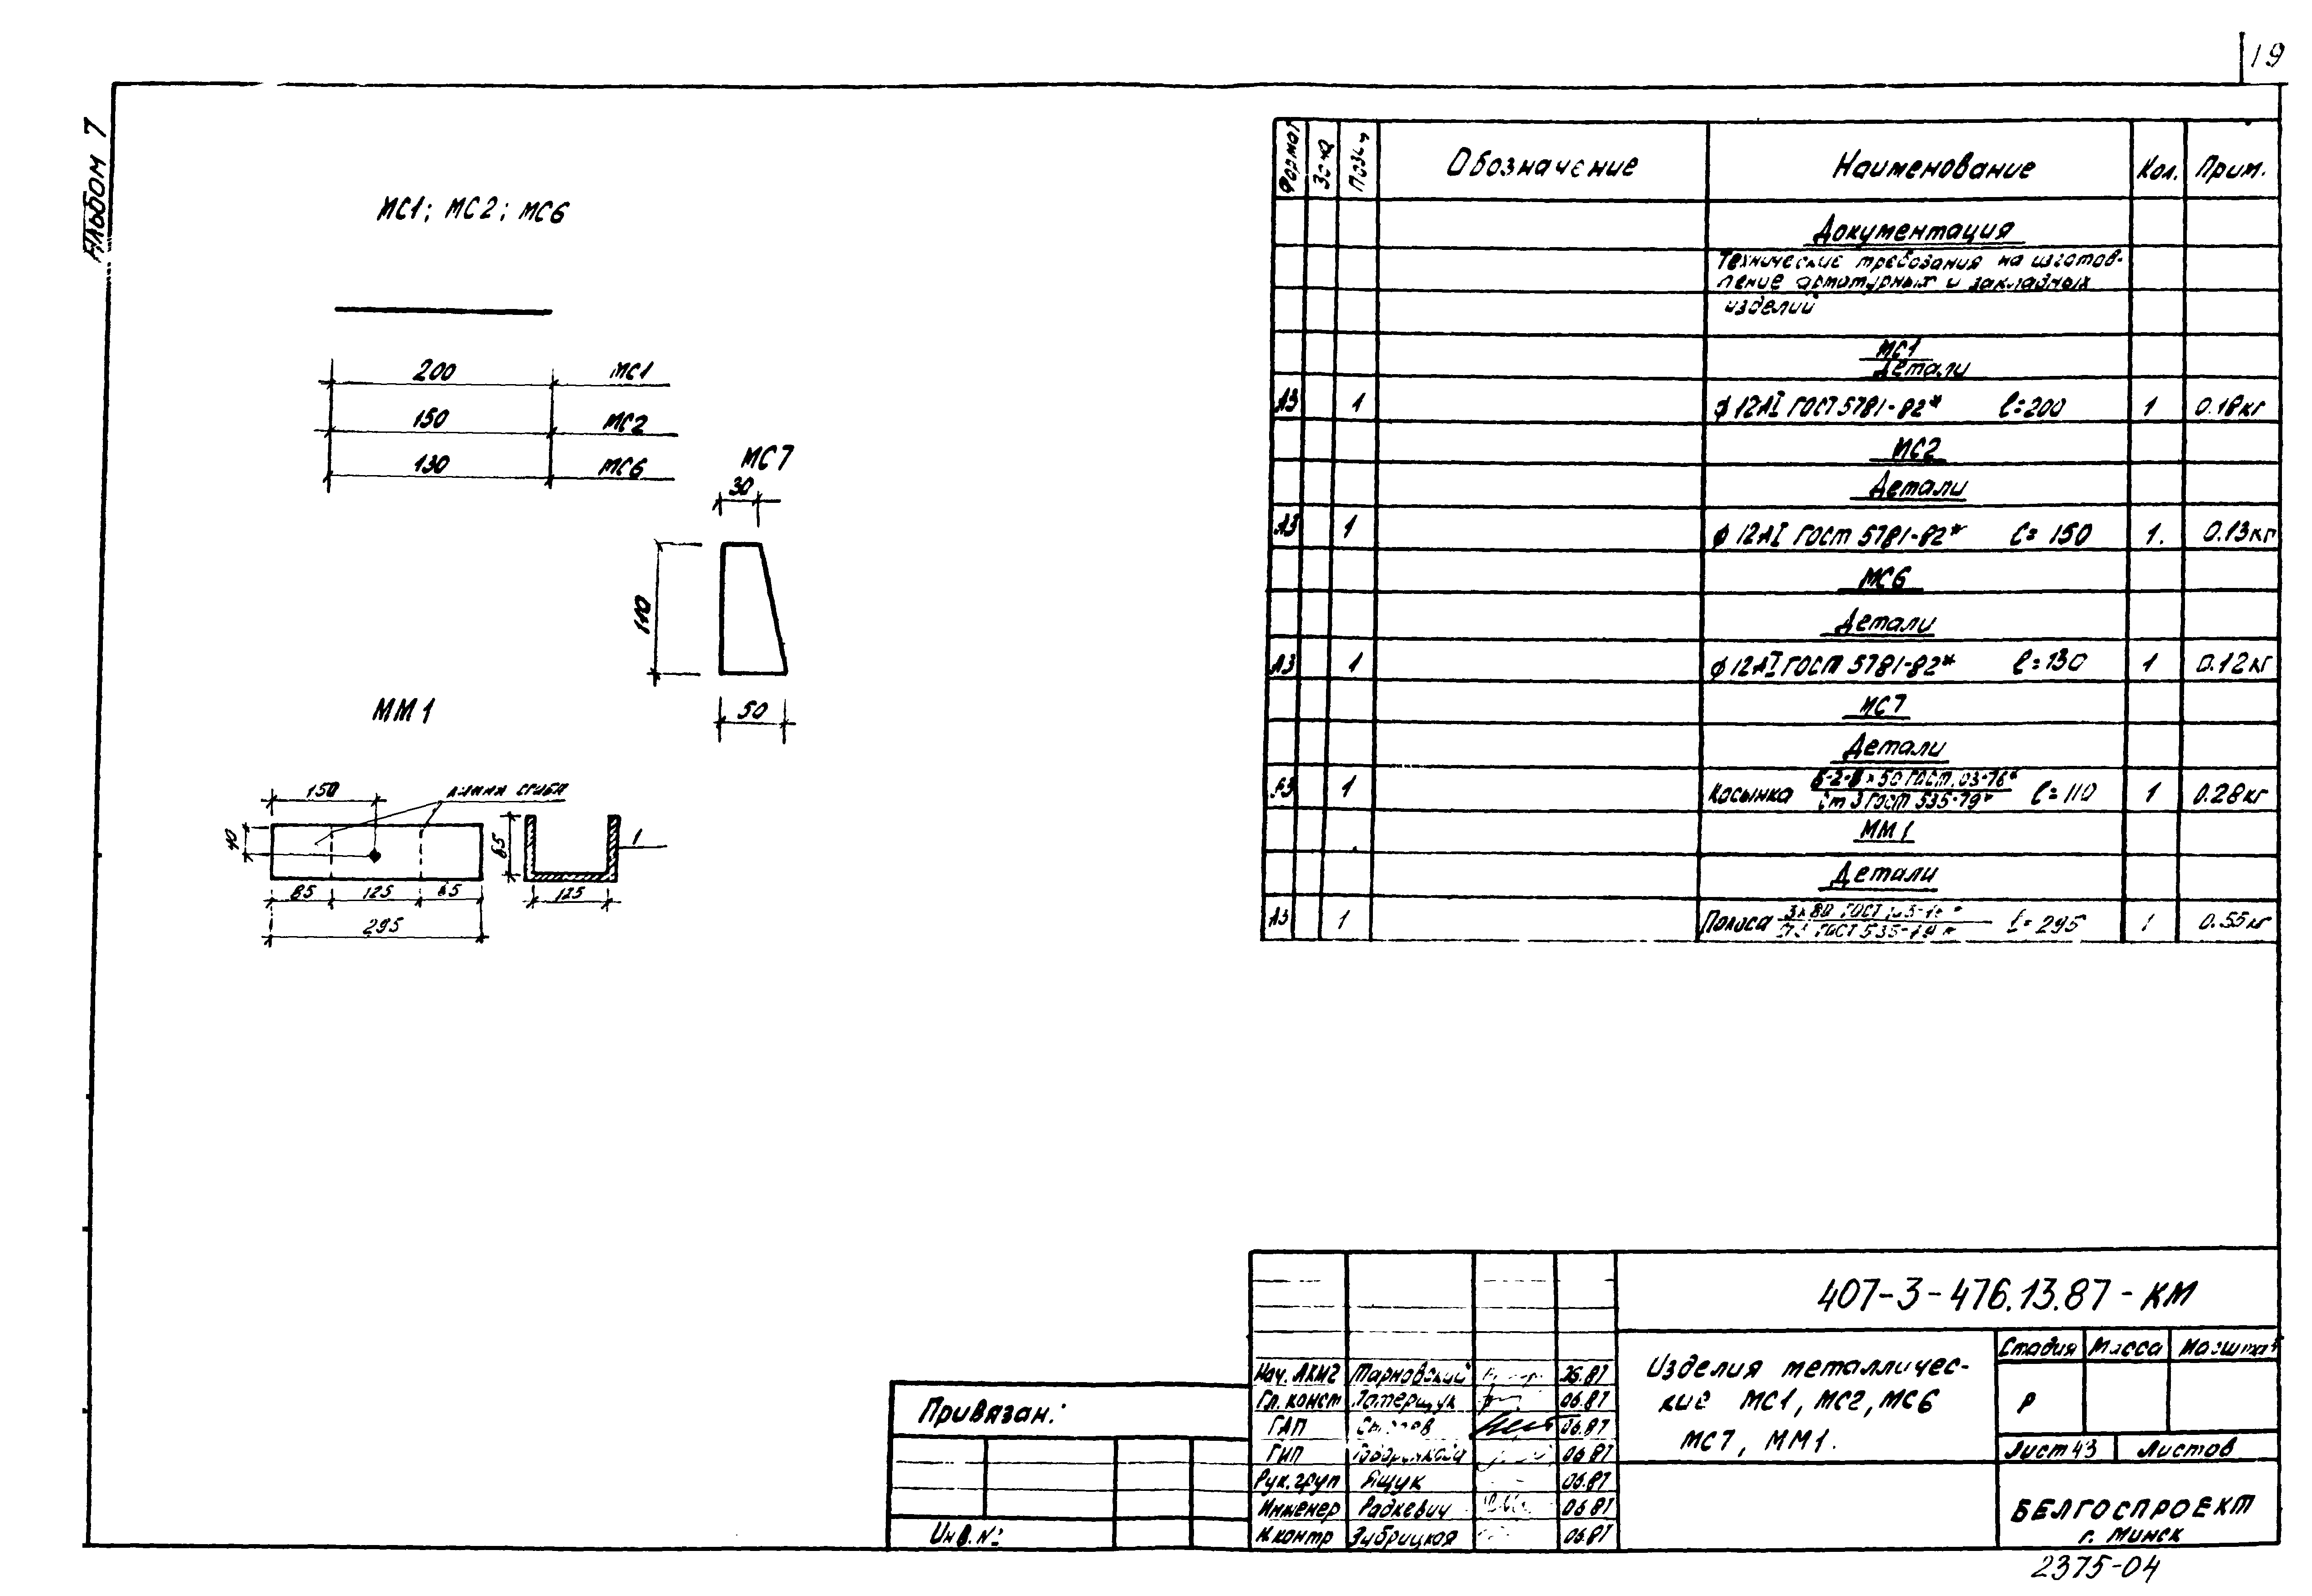 19
Альбом 7
МС1; МС2; МС6
200 МС1
150 МС2
130 МС6
МС7
30
110
50
ММ1
150 линия сгиба
40
85 125 85
295
65
125
1
Формат Зона Позиц Обозначение Наименование Кол. Прим.
Документация
Технические требования на изготов-
ление арматурных и закладных
изделий
МС1
Детали
А3 1 ⌀12АI ГОСТ 5781-82* ℓ=200 1 0.18кг
МС2
Детали
А3 1 ⌀12АI ГОСТ 5781-82* ℓ=150 1. 0.13кг
МС6
Детали
А3 1 ⌀12АI ГОСТ 5781-82* ℓ=130 1 0.12кг
МС7
Детали
А3 1 Косынка Ст 3 ГОСТ 535-79* ℓ=110 1 0.28кг
ММ1
Детали
А3 1 Полоса ℓ=295 1 0.55кг
407-3-476.13.87-КМ
Изделия металличес-
кие МС1, МС2, МС6
МС7, ММ1.
Стадия Масса Масштаб
Р
Лист 43 Листов
БЕЛГОСПРОЕКТ
г. Минск
Нач. АКМ2 Тарновский 06.87
Гл. конст 06.87
ГАП 06.87
ГИП 06.87
Рук. груп Ящук 06.87
Инженер Радкевич 06.87
Н.контр Забрицкая 06.87
Привязан:
Инв. №
2375-04